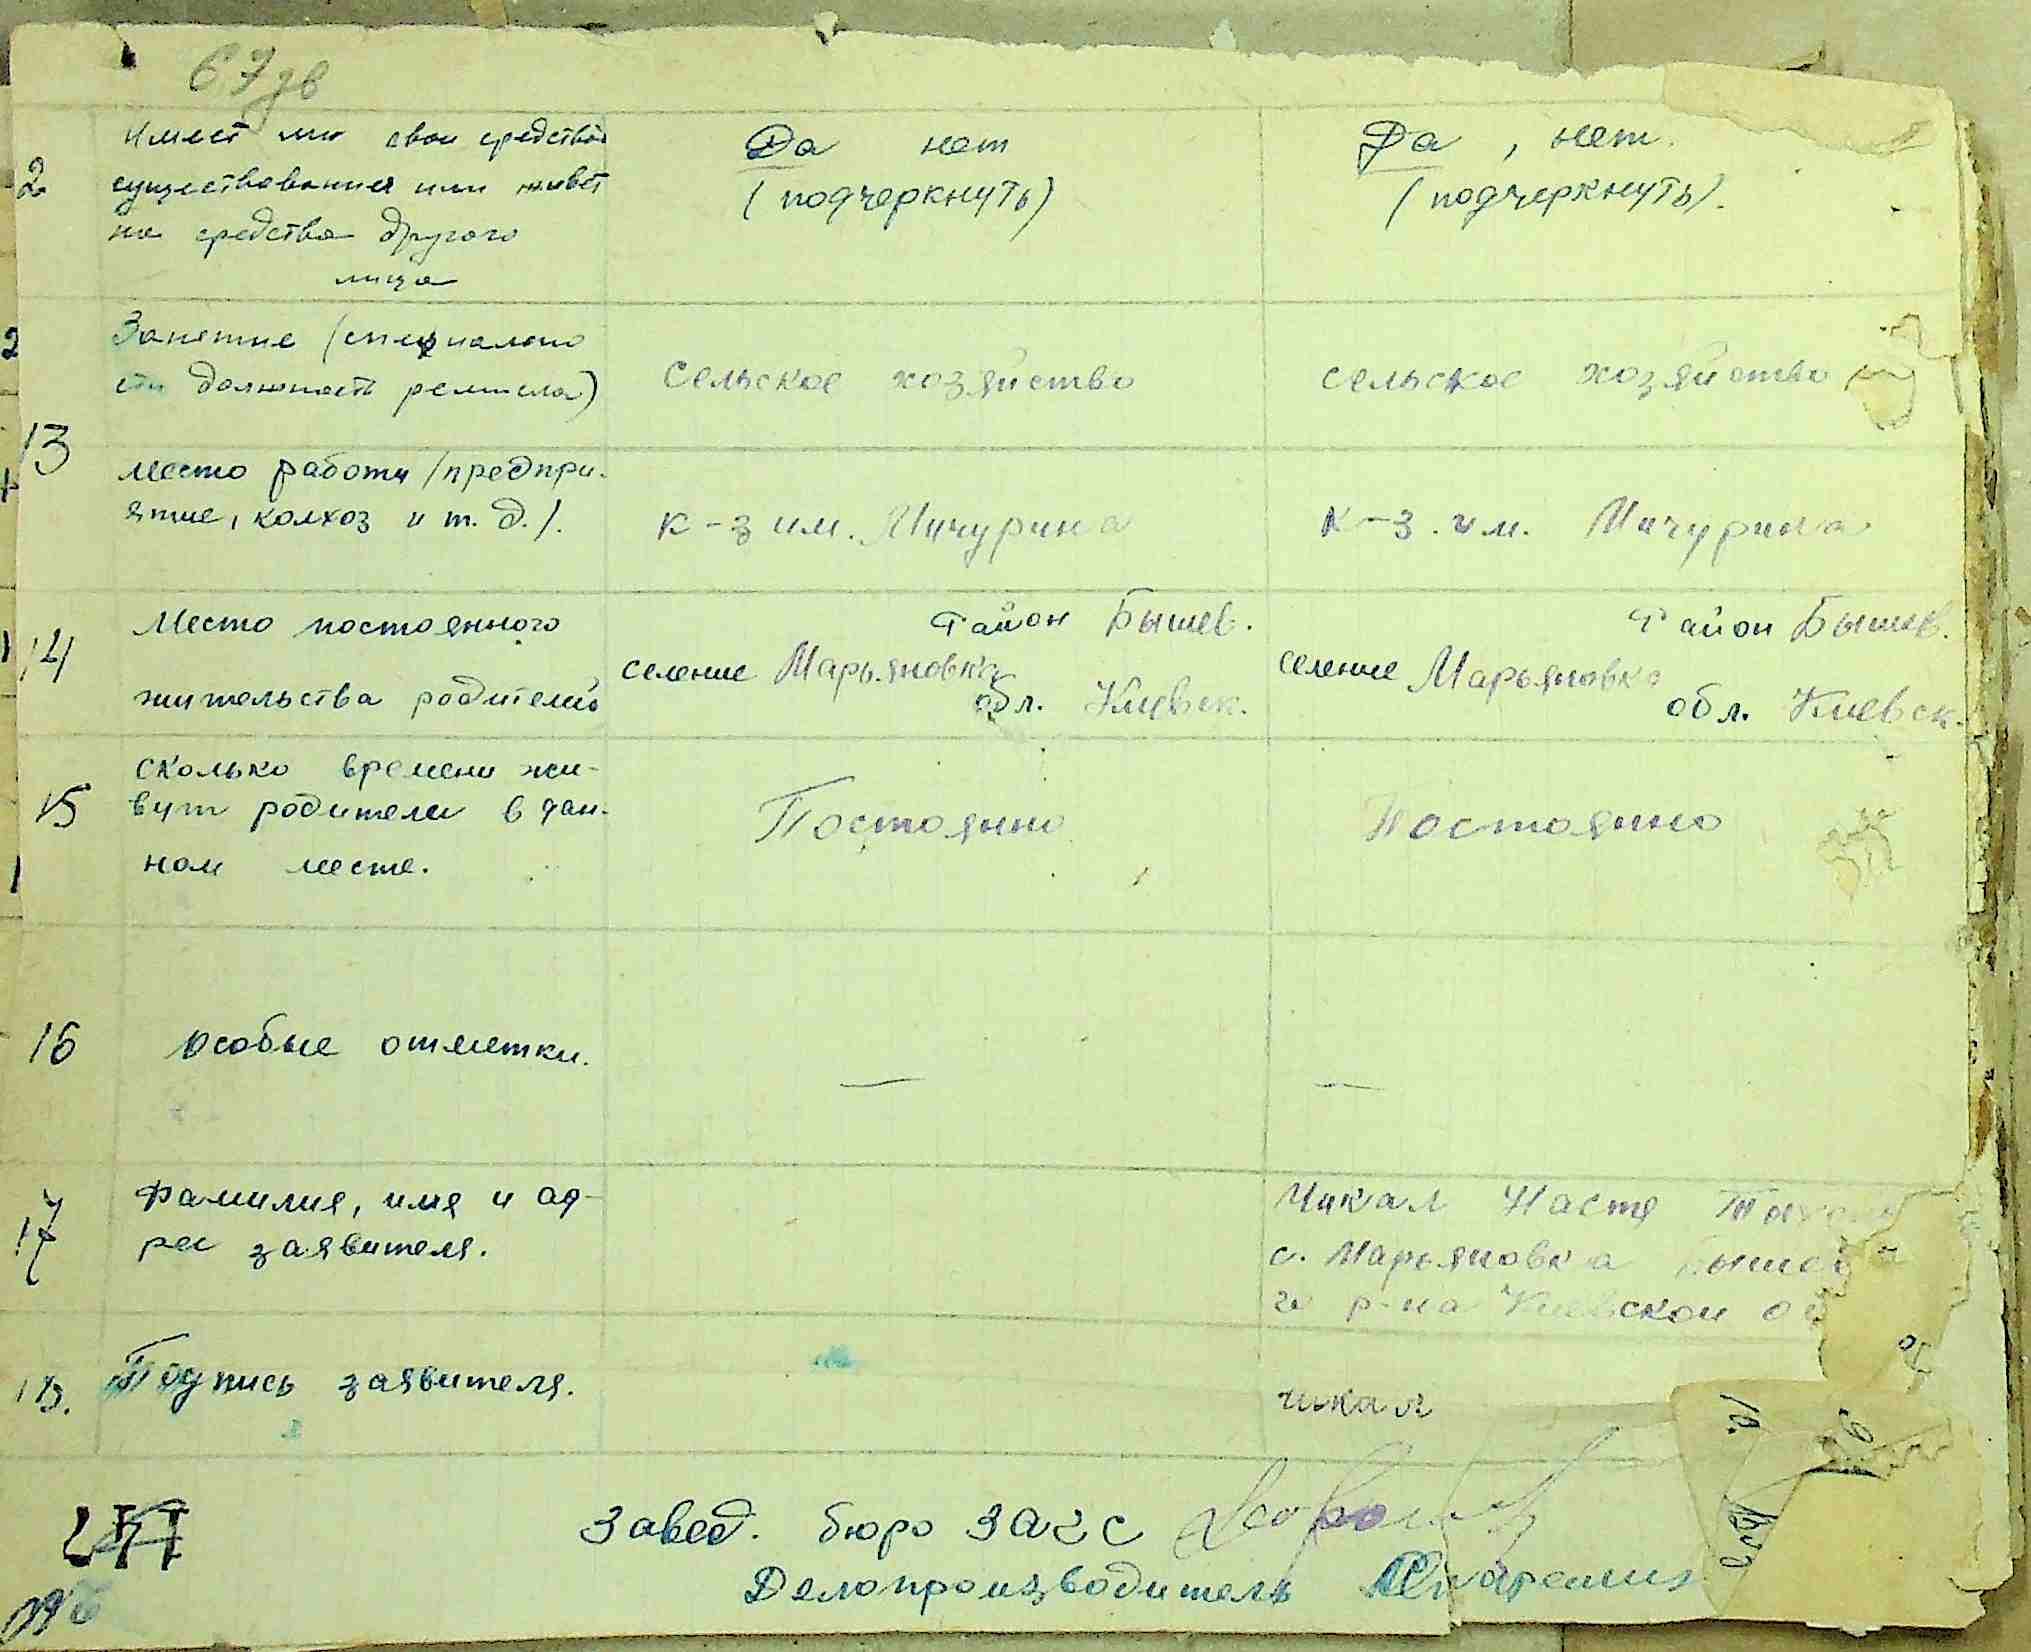 67зв
2
имеет ли свои средства
существования или живет
на средства другого
лица
Да нет
(подчеркнуть)
Да, нет.
(подчеркнуть).
Занятие (специально
сти должность ремисла)
сельское хозяйство
сельское хозяйство
13
место работы (предпри-
ятие, колхоз и т. д.).
к-з им. Мичурина
к-з. им. Мичурина
14
Место постоянного
жительства родителей
район Бышев.
селение Марьяновка
обл. Киевск.
район Бышев.
селение Марьяновка
обл. Киевск.
15
сколько времени жи-
вут родители в дан-
ном месте.
Постоянно
Постоянно
16
особые отметки.
—
—
17
Фамилия, имя и ад-
рес заявителя.
Чикал Настя
с. Марьяновка
го р-на Киевской
18.
Подпись заявителя.
чикал
Завед. бюро ЗАГС
Делопроизводитель